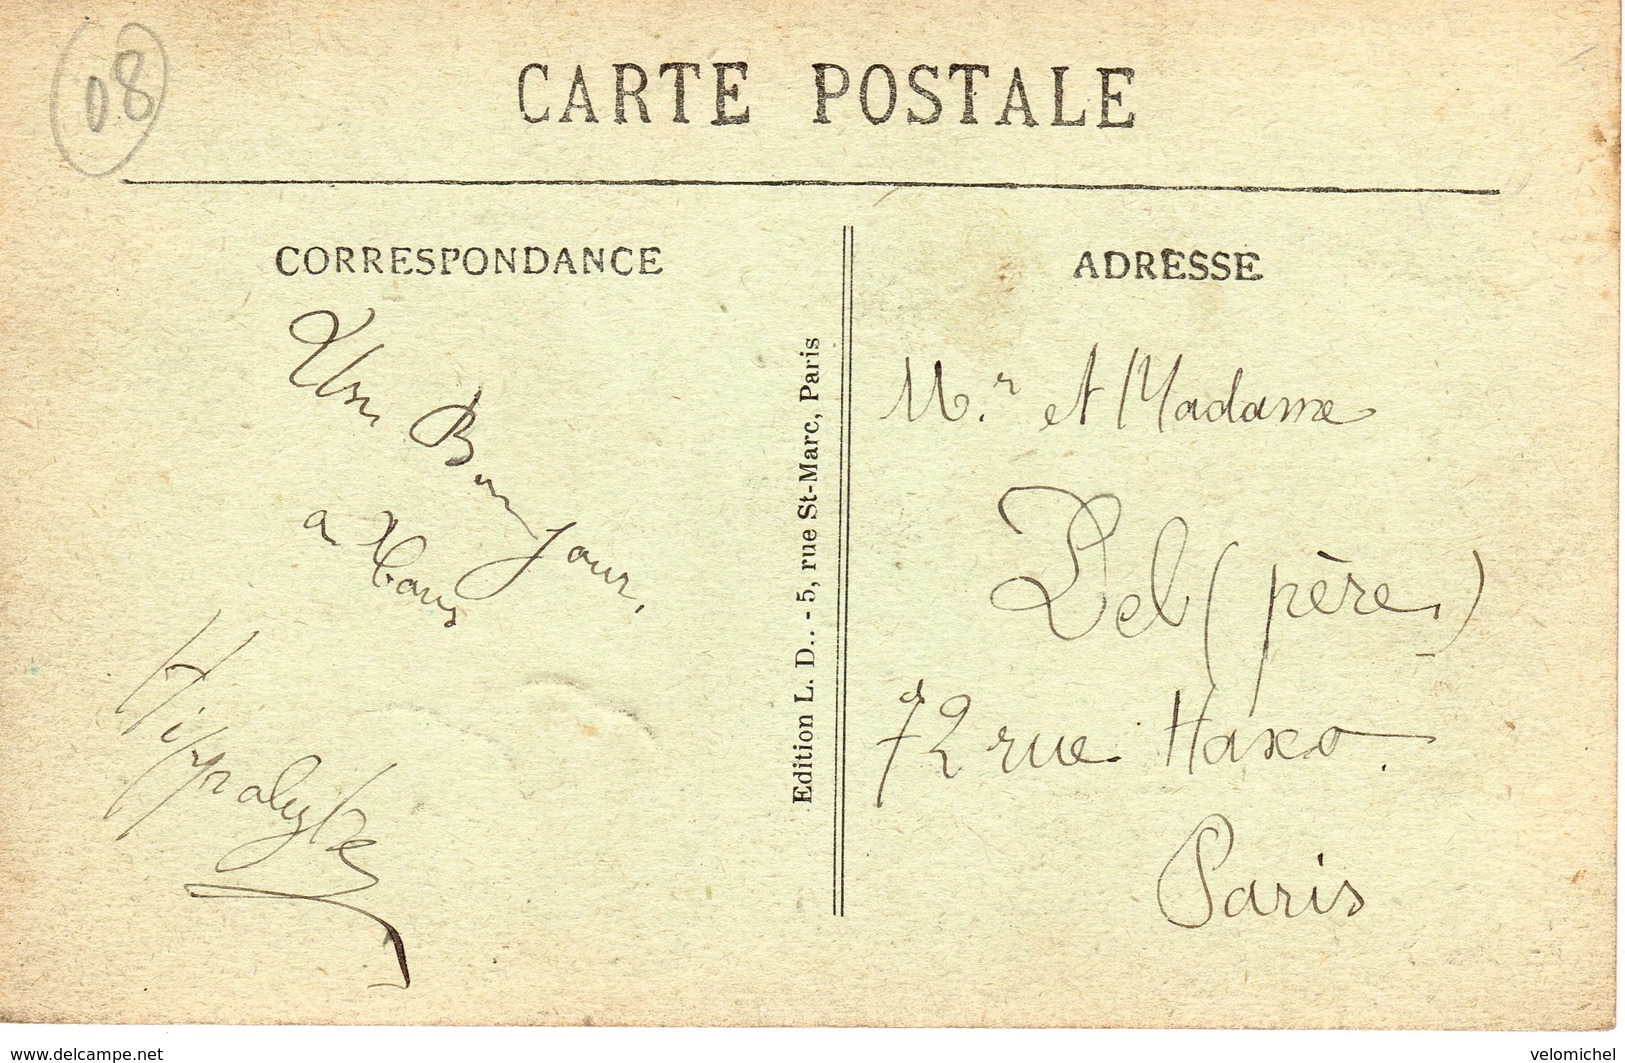 08
CARTE POSTALE
CORRESPONDANCE
Un Bonjour,
a tous
Hippolyte
Edition L. D.. - 5, rue St-Marc, Paris
ADRESSE
Mr. et Madame
Del (père)
72 rue Haxo.
Paris
www.delcampe.net
velomichel